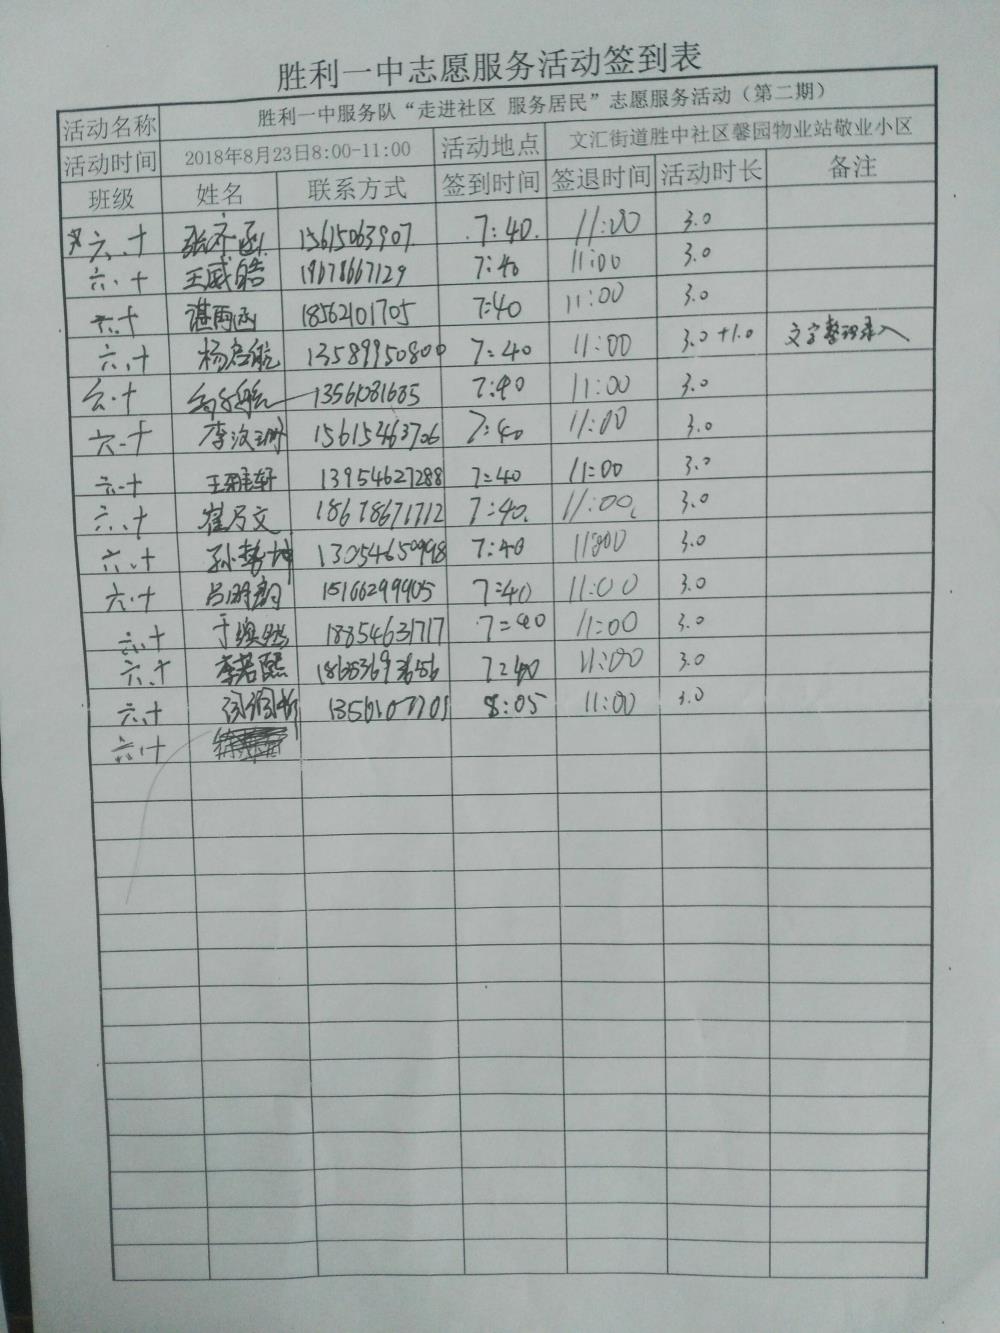 胜利一中志愿服务活动签到表
活动名称 胜利一中服务队“走进社区 服务居民”志愿服务活动（第二期）
活动时间 2018年8月23日8:00-11:00 活动地点 文汇街道胜中社区馨园物业站敬业小区
班级 姓名 联系方式 签到时间 签退时间 活动时长 备注
六.十 15615063907 7:40 11:00 3.0
六.十 王威皓 7:40 11:00 3.0
六.十 谌雨函 18562101705 7:40 11:00 3.0
六.十 杨启航 13589950800 7:40 11:00 3.0+1.0 文字整理录入
六.十 7:40 11:00 3.0
六.十 李汶珊 15615463706 7:40 11:00 3.0
六.十 王雅轩 13954627288 7:40 11:00 3.0
六.十 崔乃文 18678671712 7:40 11:00 3.0
六.十 13054650998 7:40 11:00 3.0
六.十 15166299905 7:40 11:00 3.0
六.十 18854631717 7:40 11:00 3.0
六.十 李若熙 7:40 11:00 3.0
六.十 8:05 11:00 3.0
六.十